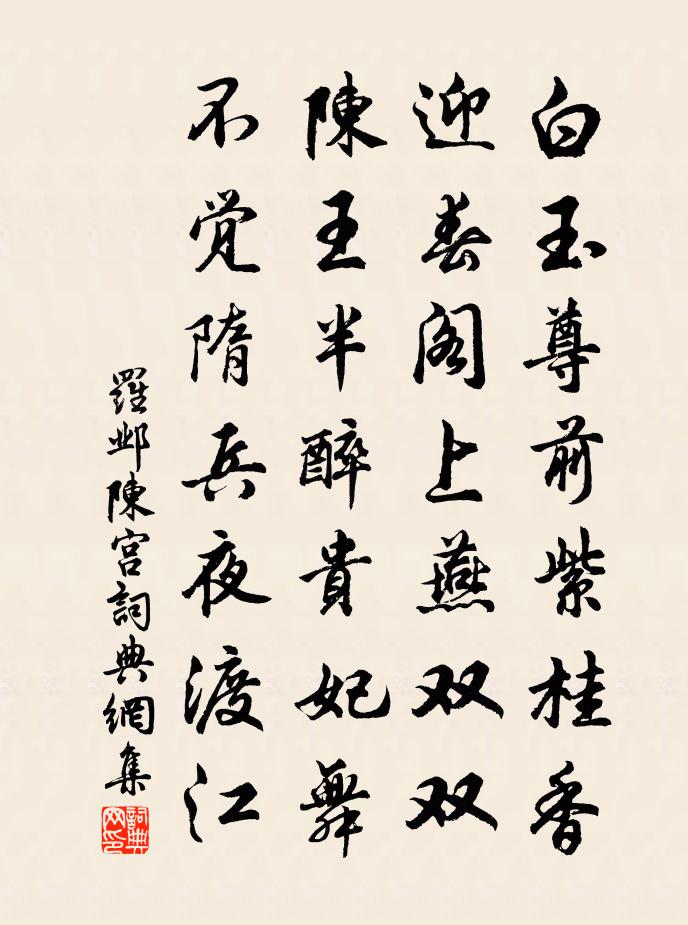 白玉尊前紫桂香
迎春阁上燕双双
陳王半醉貴妃舞
不觉隋兵夜渡江
羅邺陳宫詞典網集
詞典网印